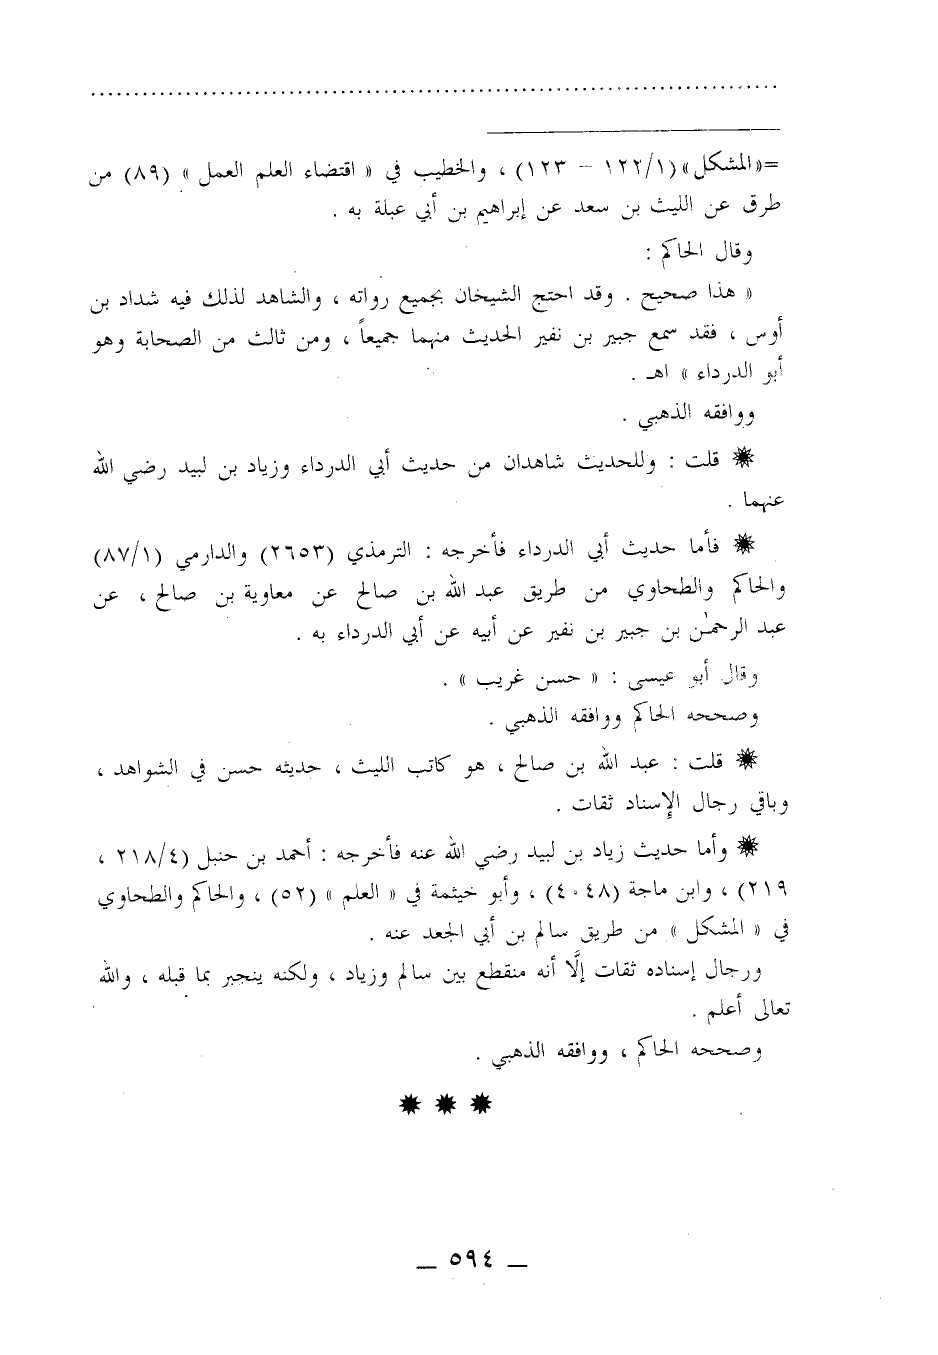 =«المشكل» (١٢٢/١ – ١٢٣) ، والخطيب في « اقتضاء العلم العمل » (٨٩) من
طرق عن الليث بن سعد عن إبراهيم بن أبي عبلة به .
وقال الحاكم :
« هذا صحيح . وقد احتج الشيخان بجميع رواته ، والشاهد لذلك فيه شداد بن
أوس ، فقد سمع جبير بن نفير الحديث منهما جميعاً ، ومن ثالث من الصحابة وهو
أبو الدرداء » اهـ .
ووافقه الذهبي .
✹ قلت : وللحديث شاهدان من حديث أبي الدرداء وزياد بن لبيد رضي الله
عنهما .
✹ فأما حديث أبي الدرداء فأخرجه : الترمذي (٢٦٥٣) والدارمي (٨٧/١)
والحاكم والطحاوي من طريق عبد الله بن صالح عن معاوية بن صالح ، عن
عبد الرحمٰن بن جبير بن نفير عن أبيه عن أبي الدرداء به .
وقال أبو عيسى : « حسن غريب » .
وصححه الحاكم ووافقه الذهبي .
✹ قلت : عبد الله بن صالح ، هو كاتب الليث ، حديثه حسن في الشواهد ،
وباقي رجال الإسناد ثقات .
✹ وأما حديث زياد بن لبيد رضي الله عنه فأخرجه : أحمد بن حنبل (٢١٨/٤ ،
٢١٩) ، وابن ماجة (٤٠٤٨) ، وأبو خيثمة في « العلم » (٥٢) ، والحاكم والطحاوي
في « المشكل » من طريق سالم بن أبي الجعد عنه .
ورجال إسناده ثقات إلَّا أنه منقطع بين سالم وزياد ، ولكنه ينجبر بما قبله ، والله
تعالى أعلم .
وصححه الحاكم ، ووافقه الذهبي .
✹ ✹ ✹
— ٥٩٤ —